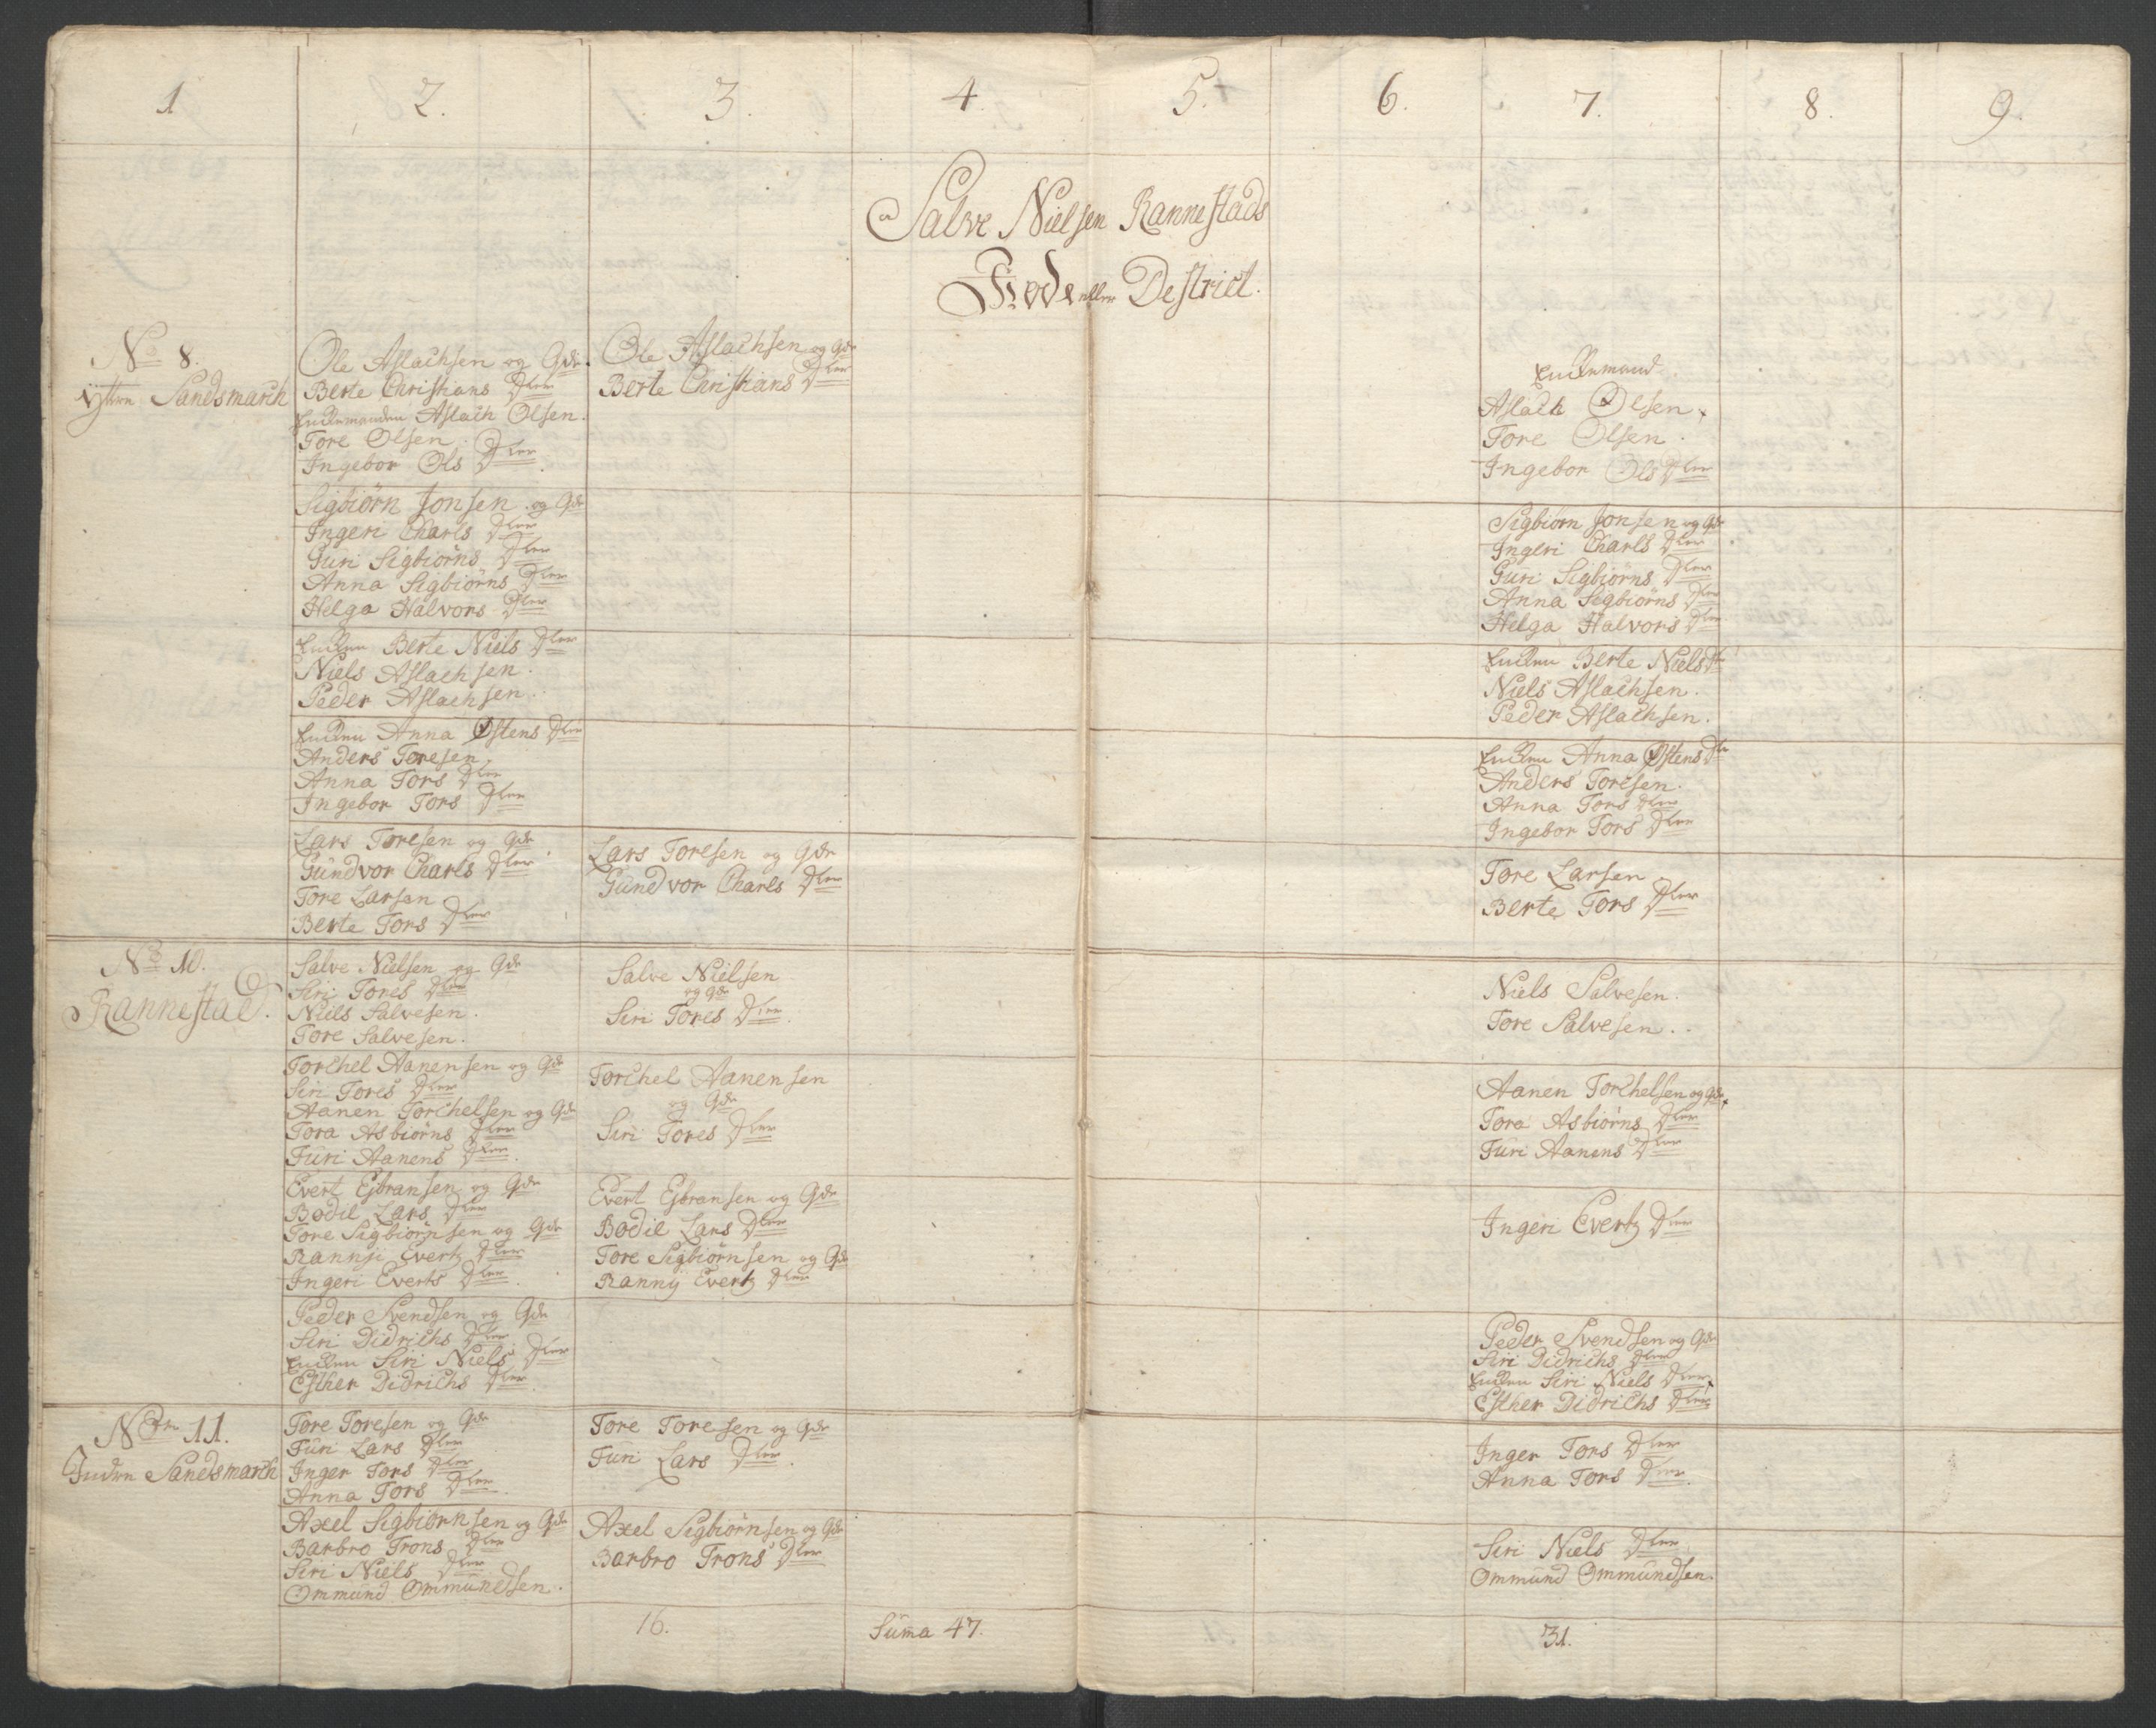 1 2. 3. 4. 5. 6. 7. 8. 9.
Salve Nielsen Rannestads
Fiode eller Destrict.
No 8.
ÿtre Sandsmarch
Ole Aslachsen og Qde
Berte Christians Dter
Enckemanden Aslach Olsen.
Tore Olsen.
Ingebor Ols Dter
Sigbiörn Jonsen og Qde
Ingeri Charls Dter
Guri Sigbiörns Dter
Anna Sigbiörns Dter
Helga Halvors Dter
Encken Berte Niels Dter
Niels Aslachsen.
Peder Aslachsen.
Encken Anna Østens Dter
Anders Toresen.
Anna Tors Dter
Ingebor Tors Dter
Lars Toresen og Qde
Gundvor Charls Dter
Tore Larsen
Berte Tors Dter
Ole Aslachsen og Qde
Berte Christians Dter
Lars Toresen og Qde
Gundvor Charls Dter
Enckemand
Aslach Olsen.
Tore Olsen.
Ingebor Ols Dter
Sigbiörn Jonsen og Qde
Ingeri Charls Dter
Guri Sigbiörns Dter
Anna Sigbiörns Dter
Helga Halvors Dter
Encken Berte Niels Dtr
Niels Aslachsen.
Peder Aslachsen.
Encken Anna Østens Dtr
Anders Toresen.
Anna Tors Dter
Ingebor Tors Dter
Tore Larsen
Berte Tors Dter
No 10.
Rannestad.
Salve Nielsen og Qde
Siri Tores Dter
Niels Salvesen.
Tore Salvesen.
Torchel Aanensen og Qde
Siri Tores Dter
Aanen Torchelsen og Qde
Tora Asbiörns Dter
Turi Aanens Dter.
Evert Ejbransen og Qde
Bodil Lars Dter
Tore Sigbiörnsen og Qde
Rannÿ Evertz Dter
Ingeri Everts Dter.
Peder Svendsen og Qde
Siri Didrichs Dter
Encken Siri Niels Dter
Esther Didrichs Dter.
Salve Nielsen
og Qde
Siri Tores Dter.
Torchel Aanensen
og Qde
Siri Tores Dter
Evert Ejbransen og Qde
Bodil Lars Dter
Tore Sigbiörnsen og Qde
Rannÿ Evertz Dter
Niels Salvesen.
Tore Salvesen.
Aanen Torchelsen og Qde
Tora Asbiörns Dter
Turi Aanens Dter
Ingeri Evertz Dter
Peder Svendsen og Qde
Siri Didrichs Dter
Encken Siri Niels Dter
Esther Didrichs Dter
No 11.
Indre Sandsmarch
Tore Toresen og Qde
Turi Lars Dter
Inger Tors Dter
Anna Tors Dter.
Axel Sigbiörnsen og Qde
Barbro Trons Dter
Siri Niels Dter
Ommund Ommundsen.
Tore Toresen og Qde
Turi Lars Dter.
Axel Sigbiörnsen og Qde
Barbro Trons Dter
Inger Tors Dter
Anna Tors Dter.
Siri Niels Dter
Ommund Ommundsen.
16. Suma 47. 31.